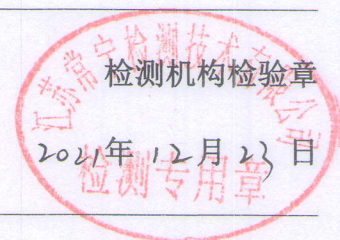 江苏常宁检测技术有限公司
检测机构检验章
2021年12月23日
检测专用章